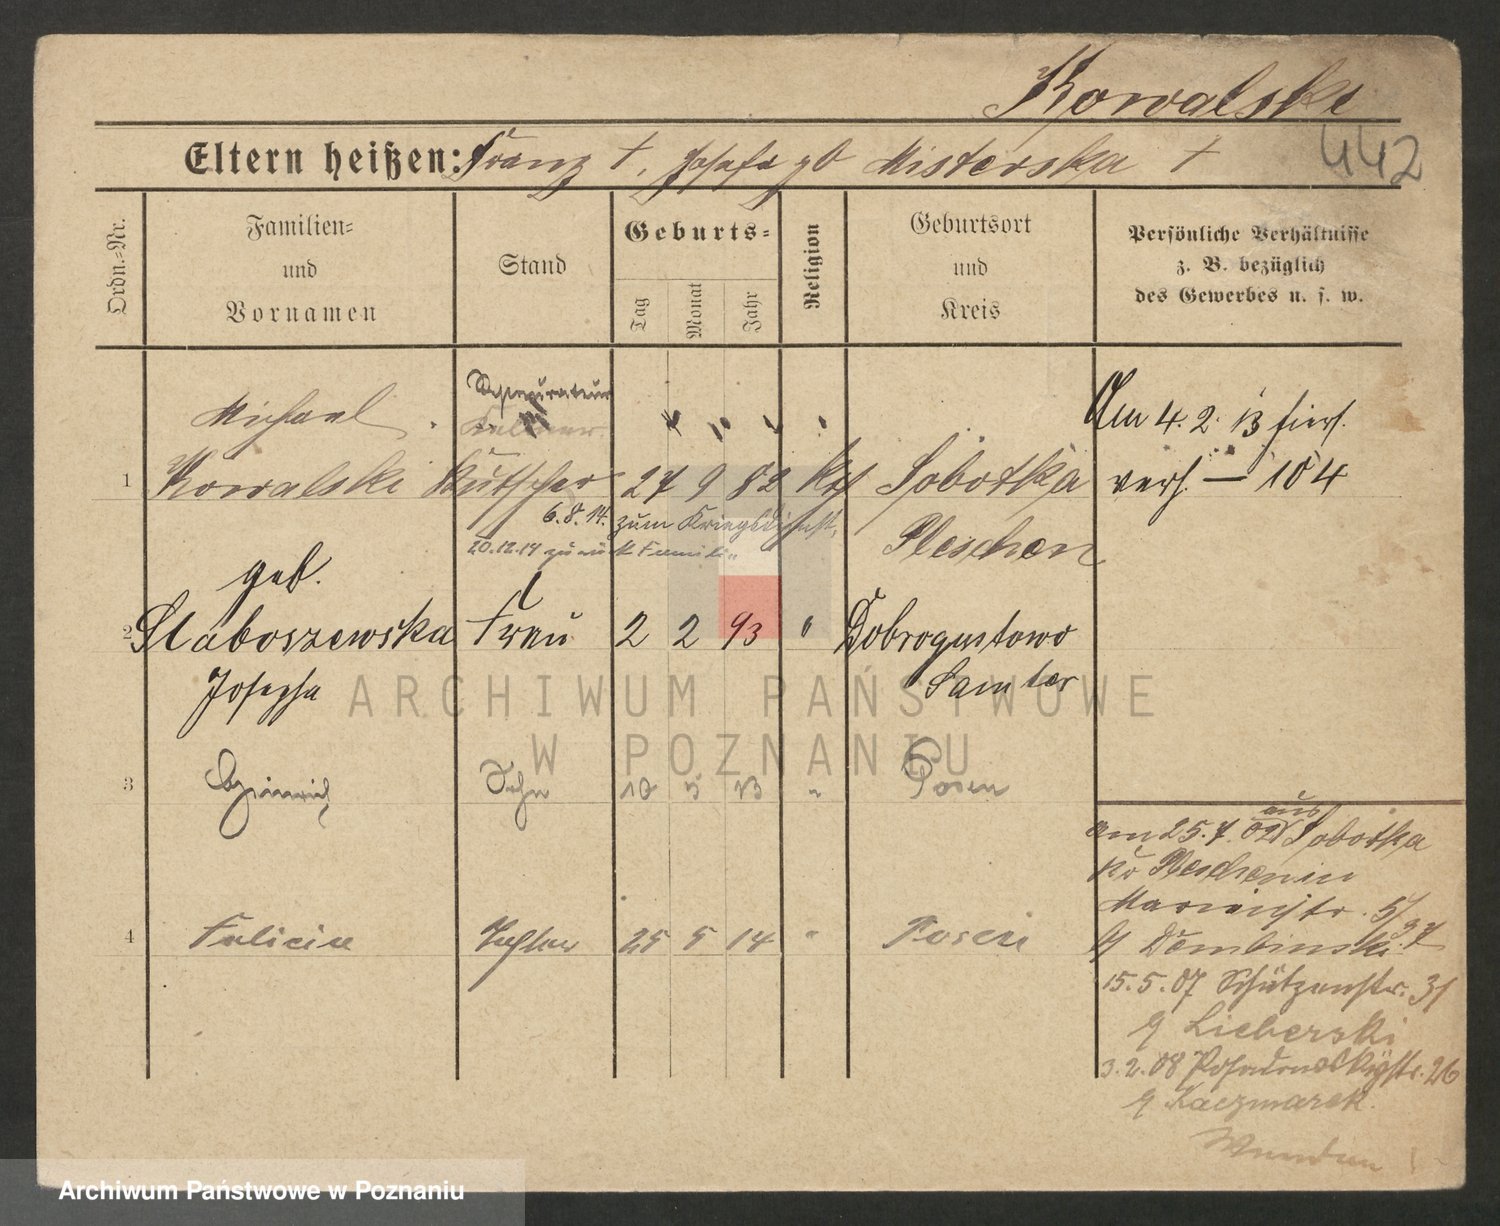 Kowalski
442
Eltern heißen: Franz †, Josefa gb Misterska †
Ordn.-Nr.
Familien-
und
Vornamen
Stand
Geburts-
Tag
Monat
Jahr
Religion
Geburtsort
und
Kreis
Persönliche Verhältnisse
z. B. bezüglich
des Gewerbes u. s. w.
Michael
Kellner
1 Kowalski Kutscher 27 9 82 kth Sobotka
Pleschen
6.8.14. zum Kriegsdienst,
20.12.14 zurück Familie
Am 4. 2. 13 hier
verh. — 104
geb.
2 Slaboszewska Frau 2 2 93 " Dobrogustowo
Josepha Samter
3 Heinrich Sohn 10 5 13 " Posen
4 Felicie Tochter 25 5 14 " Posen
am 25.7.02 aus Sobotka
Kr Pleschen in
5/
Dombinski
15.5.07 Schützenstr. 31
Lieberski
3.2.08 26
Kaczmarek
ARCHIWUM PAŃSTWOWE
W POZNANIU
Archiwum Państwowe w Poznaniu